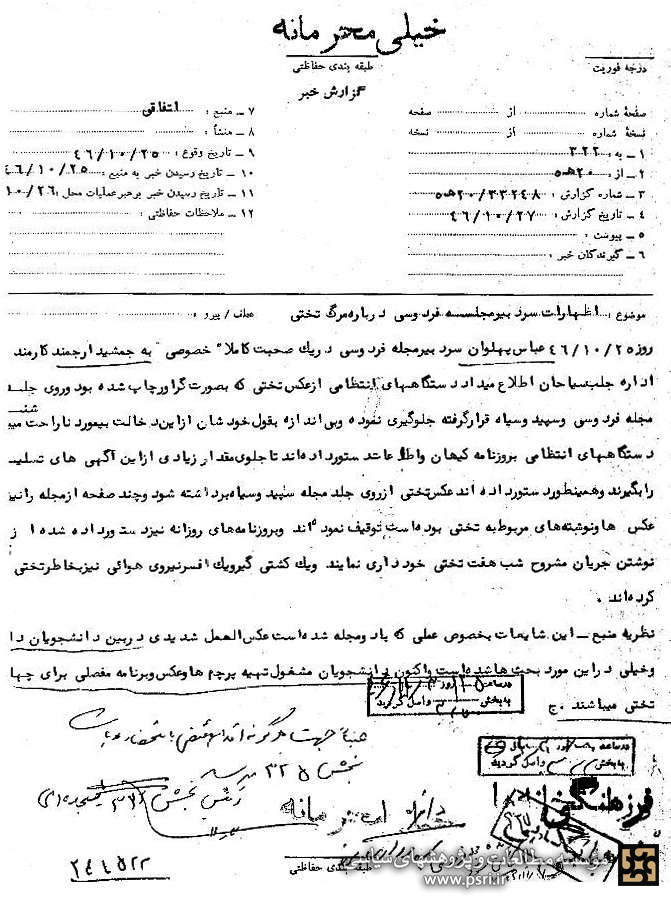 خیلی محترمانه
طبقه بندی حفاظتی
درجه فوریت
گزارش خبر
صفحهٔ شماره از صفحه
نسخهٔ شماره از نسخه
۱ ـ به : ۳۲۲
۲ ـ از : ۲۰ه۵
۳ ـ شماره گزارش : ۲۰/۳۳۲۴۸ه۵
۴ ـ تاریخ گزارش : ۴۶/۱۰/۲۷
۵ ـ پیوست :
۶ ـ گیرندگان خبر :
۷ ـ منبع : اتفاقی
۸ ـ منشأ :
۹ ـ تاریخ وقوع : ۴۶/۱۰/۲۵
۱۰ ـ تاریخ رسیدن خبر به منبع : ۴۶/۱۰/۲۵
۱۱ ـ تاریخ رسیدن خبر برهبر عملیات محل : ۱۰/۲۶
۱۲ ـ ملاحظات حفاظتی :
موضوع : اظهارات سردبیر مجلسه فردوسی درباره مرگ تختی عطف / پیرو :
روز ۴۶/۱۰/۲۵ عباس پهلوان سردبیر مجله فردوسی در یک صحبت کاملا" خصوصی " به جمشید ارجمند کارمند
اداره جلب سیاحان اطلاع میداد دستگاههای انتظامی از عکس تختی که بصورت گراور چاپ شده بود و روی جلد
مجله فردوسی و سپید و سیاه قرار گرفته جلوگیری نموده و بی اندازه بقول خودشان از این دخالت بیمورد ناراحت میبا
شند
دستگاههای انتظامی بروزنامه کیهان و اطلاعات دستور داده اند تا جلوی مقدار زیادی از این آگهی های تسلیـ
را بگیرند و همینطور دستور داده اند عکس تختی از روی جلد مجله سپید و سیاه برداشته شود و چند صفحه از مجله را نیز
عکس ها و نوشته های مربوط به تختی بوده است توقیف نموده اند و بروزنامه های روزانه نیز دستور داده شده از
نوشتن جریان مشروح شب هفت تختی خودداری نمایند. و یک کشتی گیر و یک افسر نیروی هوائی نیز بخاطر تختی
کرده اند .
نظریه منبع ـ این شایعات بخصوص عملی که با دو مجله شده است عکس العمل شدیدی در بین دانشجویان دا
و خیلی در این مورد بحث ها شده است و اکنون دانشجویان مشغول تهیه پرچم ها و عکس و برنامه مفصلی برای چها
تختی میباشند . ج
در ساعت روز
به بخش واصل گردید
در ساعت روز
به بخش واصل گردید
بخش ۳۲۵
رئیس بخش ۳۲۱
طبقه بندی حفاظتی
۲۴۴۵۲۲
موسسه مطالعات و پژوهشهای سیاسی
www.psri.ir